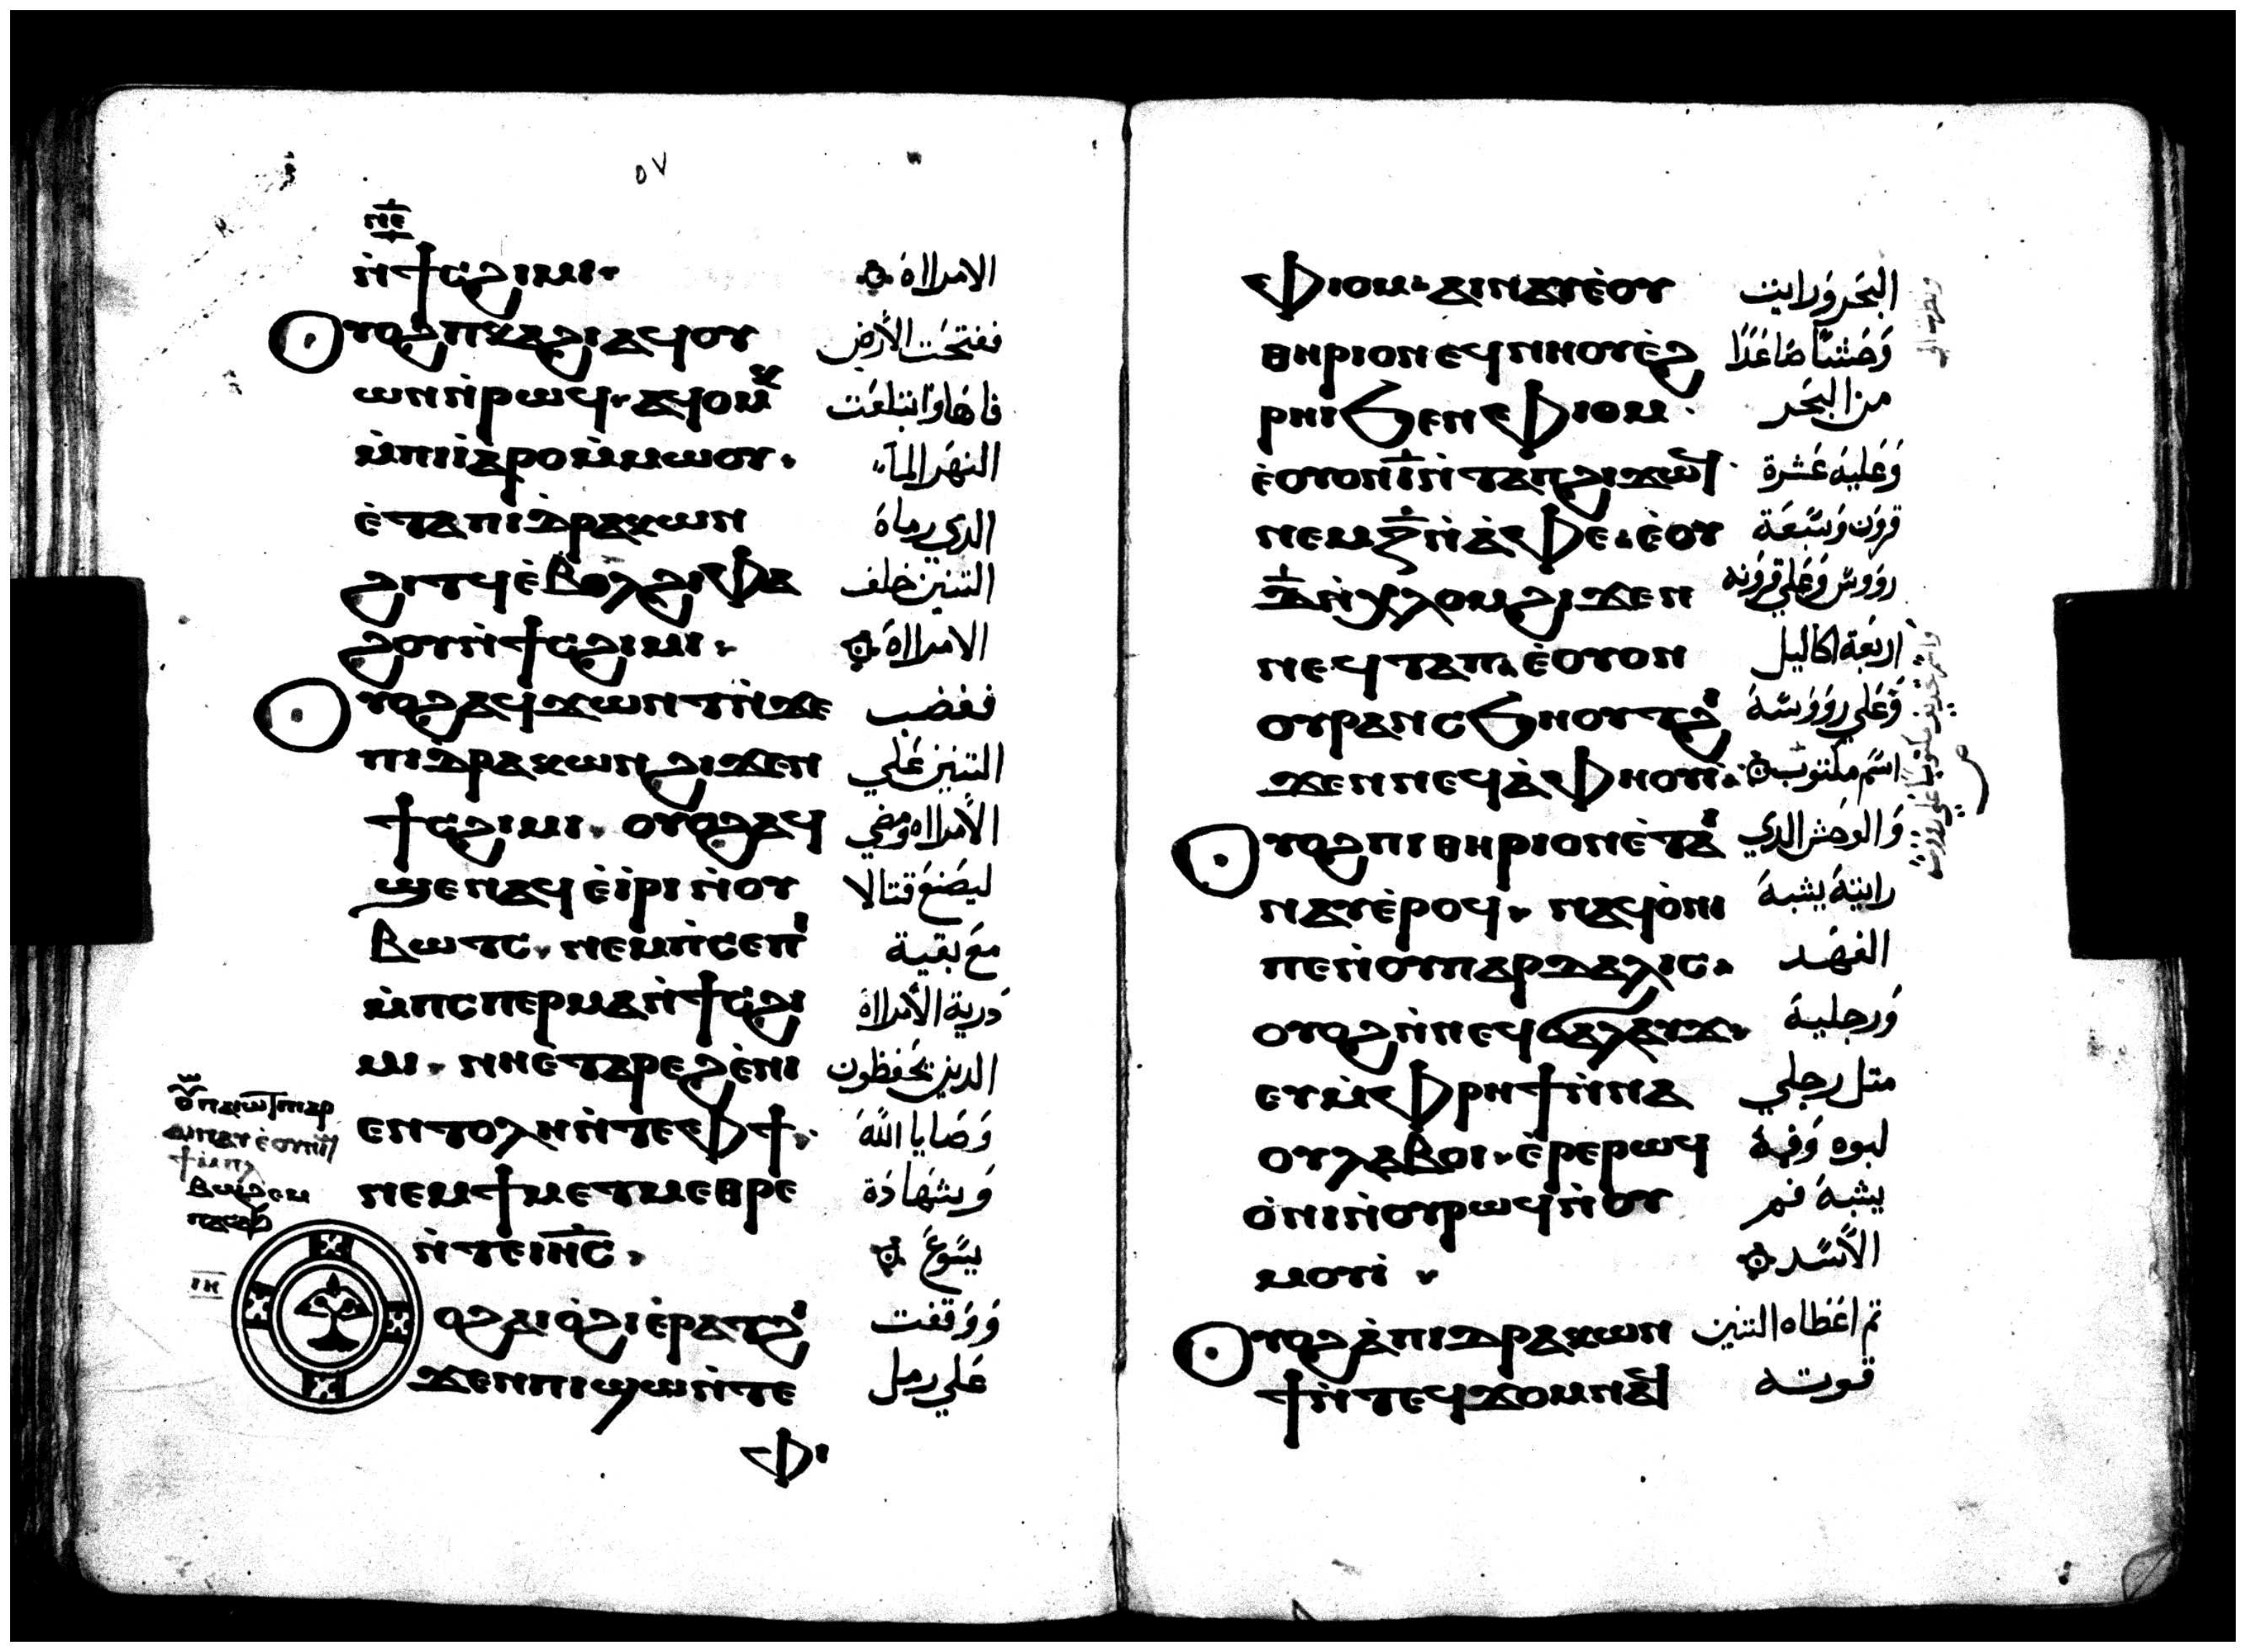 ٥٧
ⲛⲉ
ⲛ̀ϯⲥϩⲓⲙⲓ· الامرااة
ⲟⲩⲟϩ ⲡⲕⲁϩⲓ ⲁϥⲟⲩ ففتحَت الأرض
ⲱⲛ ⲛ̀ⲣⲱϥ· ⲁϥⲟⲙⲕ فاهَا وَابتلعَت
ⲙ̀ⲡⲓⲓ̀ⲁⲣⲟ ⲙ̀ⲙⲱⲟⲩ· النهرَ المآء
ⲉ̀ⲧⲁ ⲡⲓⲇⲣⲁⲕⲱⲛ الدى رماهَ
ϩⲓⲧϥ ⲉ̀ⲃⲟⲗ ϩⲓⲫⲁ التنين خلف
ϩⲟⲩ ⲛ̀ϯⲥϩⲓⲙⲓ· الامرااة
ⲟⲩⲟϩ ⲁϥϫⲱⲛⲧ ⲛ̀ϫⲉ فغضب
ⲡⲓⲇⲣⲁⲕⲱⲛ ϩⲓϫⲉⲛ التنين عَلي
ϯⲥϩⲓⲙⲓ· ⲟⲩⲟϩ ⲁϥ الأمرااه ومضي
ϣⲉⲛⲁϥ ⲉ̀ⲓ̀ⲣⲓ ⲛ̀ⲟⲩ ليصَنعَ قتالا
ⲃⲱⲧⲥ· ⲛⲉⲙ ⲡ̀ⲥⲉⲡⲓ معَ بقية
ⲙ̀ⲡⲥⲡⲉⲣⲙⲁ ⲛ̀ϯⲥϩⲓ دَرية الأمرااة
ⲙⲓ· ⲛⲏⲉ̀ⲧⲁⲣⲉϩ ⲉ̀ⲛⲓ الدين يحَفظون
ⲉⲛⲧⲟⲗⲏ ⲛ̀ⲧⲉ ⲫϯ· وَصَايا اللّه
ⲛⲉⲙ ϯⲙⲉⲧⲙⲉⲑⲣⲉ وَشهَادَة
ⲛ̀ⲧⲉ ⲓⲏⲥ· يسُوعَ
ⲓⲏ
ⲟϩ ⲁⲓⲟ̀ϩⲓ ⲉ̀ⲣⲁⲧ ϩⲓ وَوَقفت
ϫⲉⲛ ⲡⲓϣⲱ ⲛ̀ⲧⲉ عَلي رمل
ⲫⲓ
ⲉⲫⲓⲟⲙ· ⲁⲓⲛⲁⲩ ⲉ̀ⲟⲩ البحَر وَرايت
ⲑⲏⲣⲓⲟⲛ ⲉϥⲛⲏⲟⲩ ⲉ̀ϩ وَحَشًا صَاعَدًا
ⲣⲏⲓ ϧⲉⲛ ⲉⲫⲓⲟⲙ· من البحَر
ⲉ̀ⲟⲩⲟⲛ ⲓ ⲛ̀ⲧⲁⲡ ϩⲓϫⲱϥ· وَعَليهَ عَشرة
ⲛⲉⲙ ⲍ ⲛ̀ⲁ̀ⲫⲉ· ⲉ̀ⲟⲩ قرون وَسَبعَة
ⲇ ⲛ̀ⲭⲗⲟⲙ ϩⲓϫⲉⲛ رووس وَعَلي قرونه
ⲛⲉϥⲧⲁⲡ· ⲉ̀ⲟⲩⲟⲛ اربَعَة اكاليل
ⲟⲩⲣⲁⲛ ⲥϧⲏⲟⲩⲧ ϩⲓ وَعَلي رووَسَهَ
ϫⲉⲛ ⲛⲉϥⲁ̀ⲫⲏⲟⲩⲓ̀· اسَم مكتوب
ⲟⲩⲟϩ ⲡⲓⲑⲏⲣⲓⲟⲛ ⲉ̀ⲧⲁⲓ وَالوحَش الدي
ⲛⲁⲩ ⲉ̀ⲣⲟϥ· ⲛⲁϥⲟ̀ⲛⲓ رايتهَ يشبهَ
ⲡⲉ ⲛ̀ⲟⲩⲡⲁⲣⲇⲁⲗⲓⲥ· الفهَد
ⲟⲩⲟϩ ⲛ̀ⲛⲉϥϭⲁⲗⲁⲩϫ· وَرجليهَ
ⲉⲩⲙ̀ⲫⲣⲏϯ ⲛ̀ⲛⲁ متل رجلي
ⲟⲩⲗⲁⲃⲟⲓ· ⲉ̀ⲣⲉ ⲣⲱϥ لبوه وَفهَ
ⲟ̀ⲛⲓ ⲛ̀ⲟⲩⲣⲱϥ ⲛ̀ⲟⲩ يشبهَ فم
ⲙⲟⲩⲓ̀· الأسَد
ⲟⲩⲟϩ ⲁ̀ ⲡⲓⲇⲣⲁⲕⲱⲛ تم اعَطاه التنين
ϯ ⲛ̀ⲧⲉϥϫⲟⲙ ⲛⲁϥ قوته